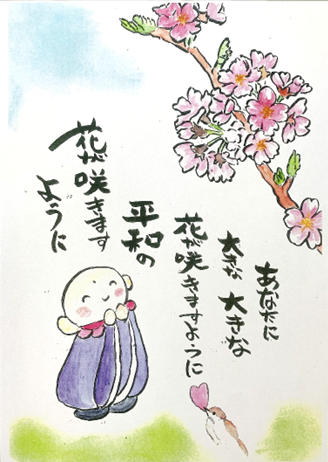 あなたに
大きな 大きな
花が咲きますように
平和の
花が咲きます
ように